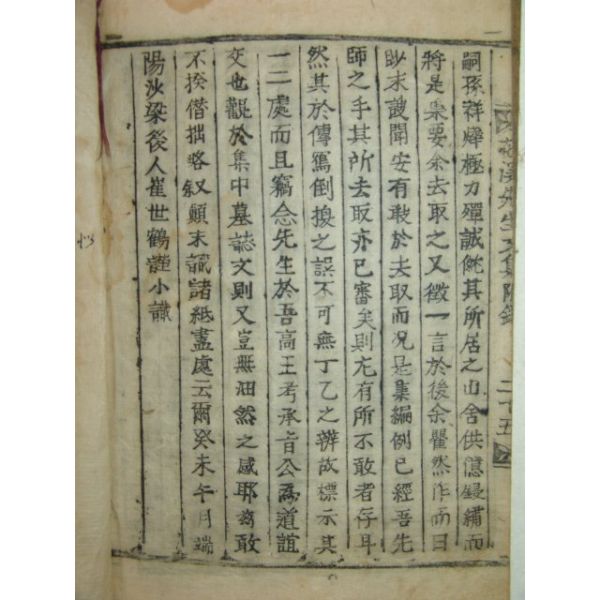 嗣孫祥燁極力殫誠就其所居之山舍供億鋟繡而
將是集要余去取之又徵一言於後余瞿然作而曰
眇末謏聞安有敢於去取而况是集編例已經吾先
師之手其所去取亦已審矣則尤有所不敢者存耳
然其於傳寫倒換之誤不可無丁乙之辨故標示其
一二處而且竊念先生於吾高王考承旨公爲道誼
交也觀於集中墓誌文則又豈無油然之感耶玆敢
不揆僭拙略叙顚末識諸紙盡處云爾癸未午月端
陽沙梁後人崔世鶴謹小識
溪先生文集附錄
二十五